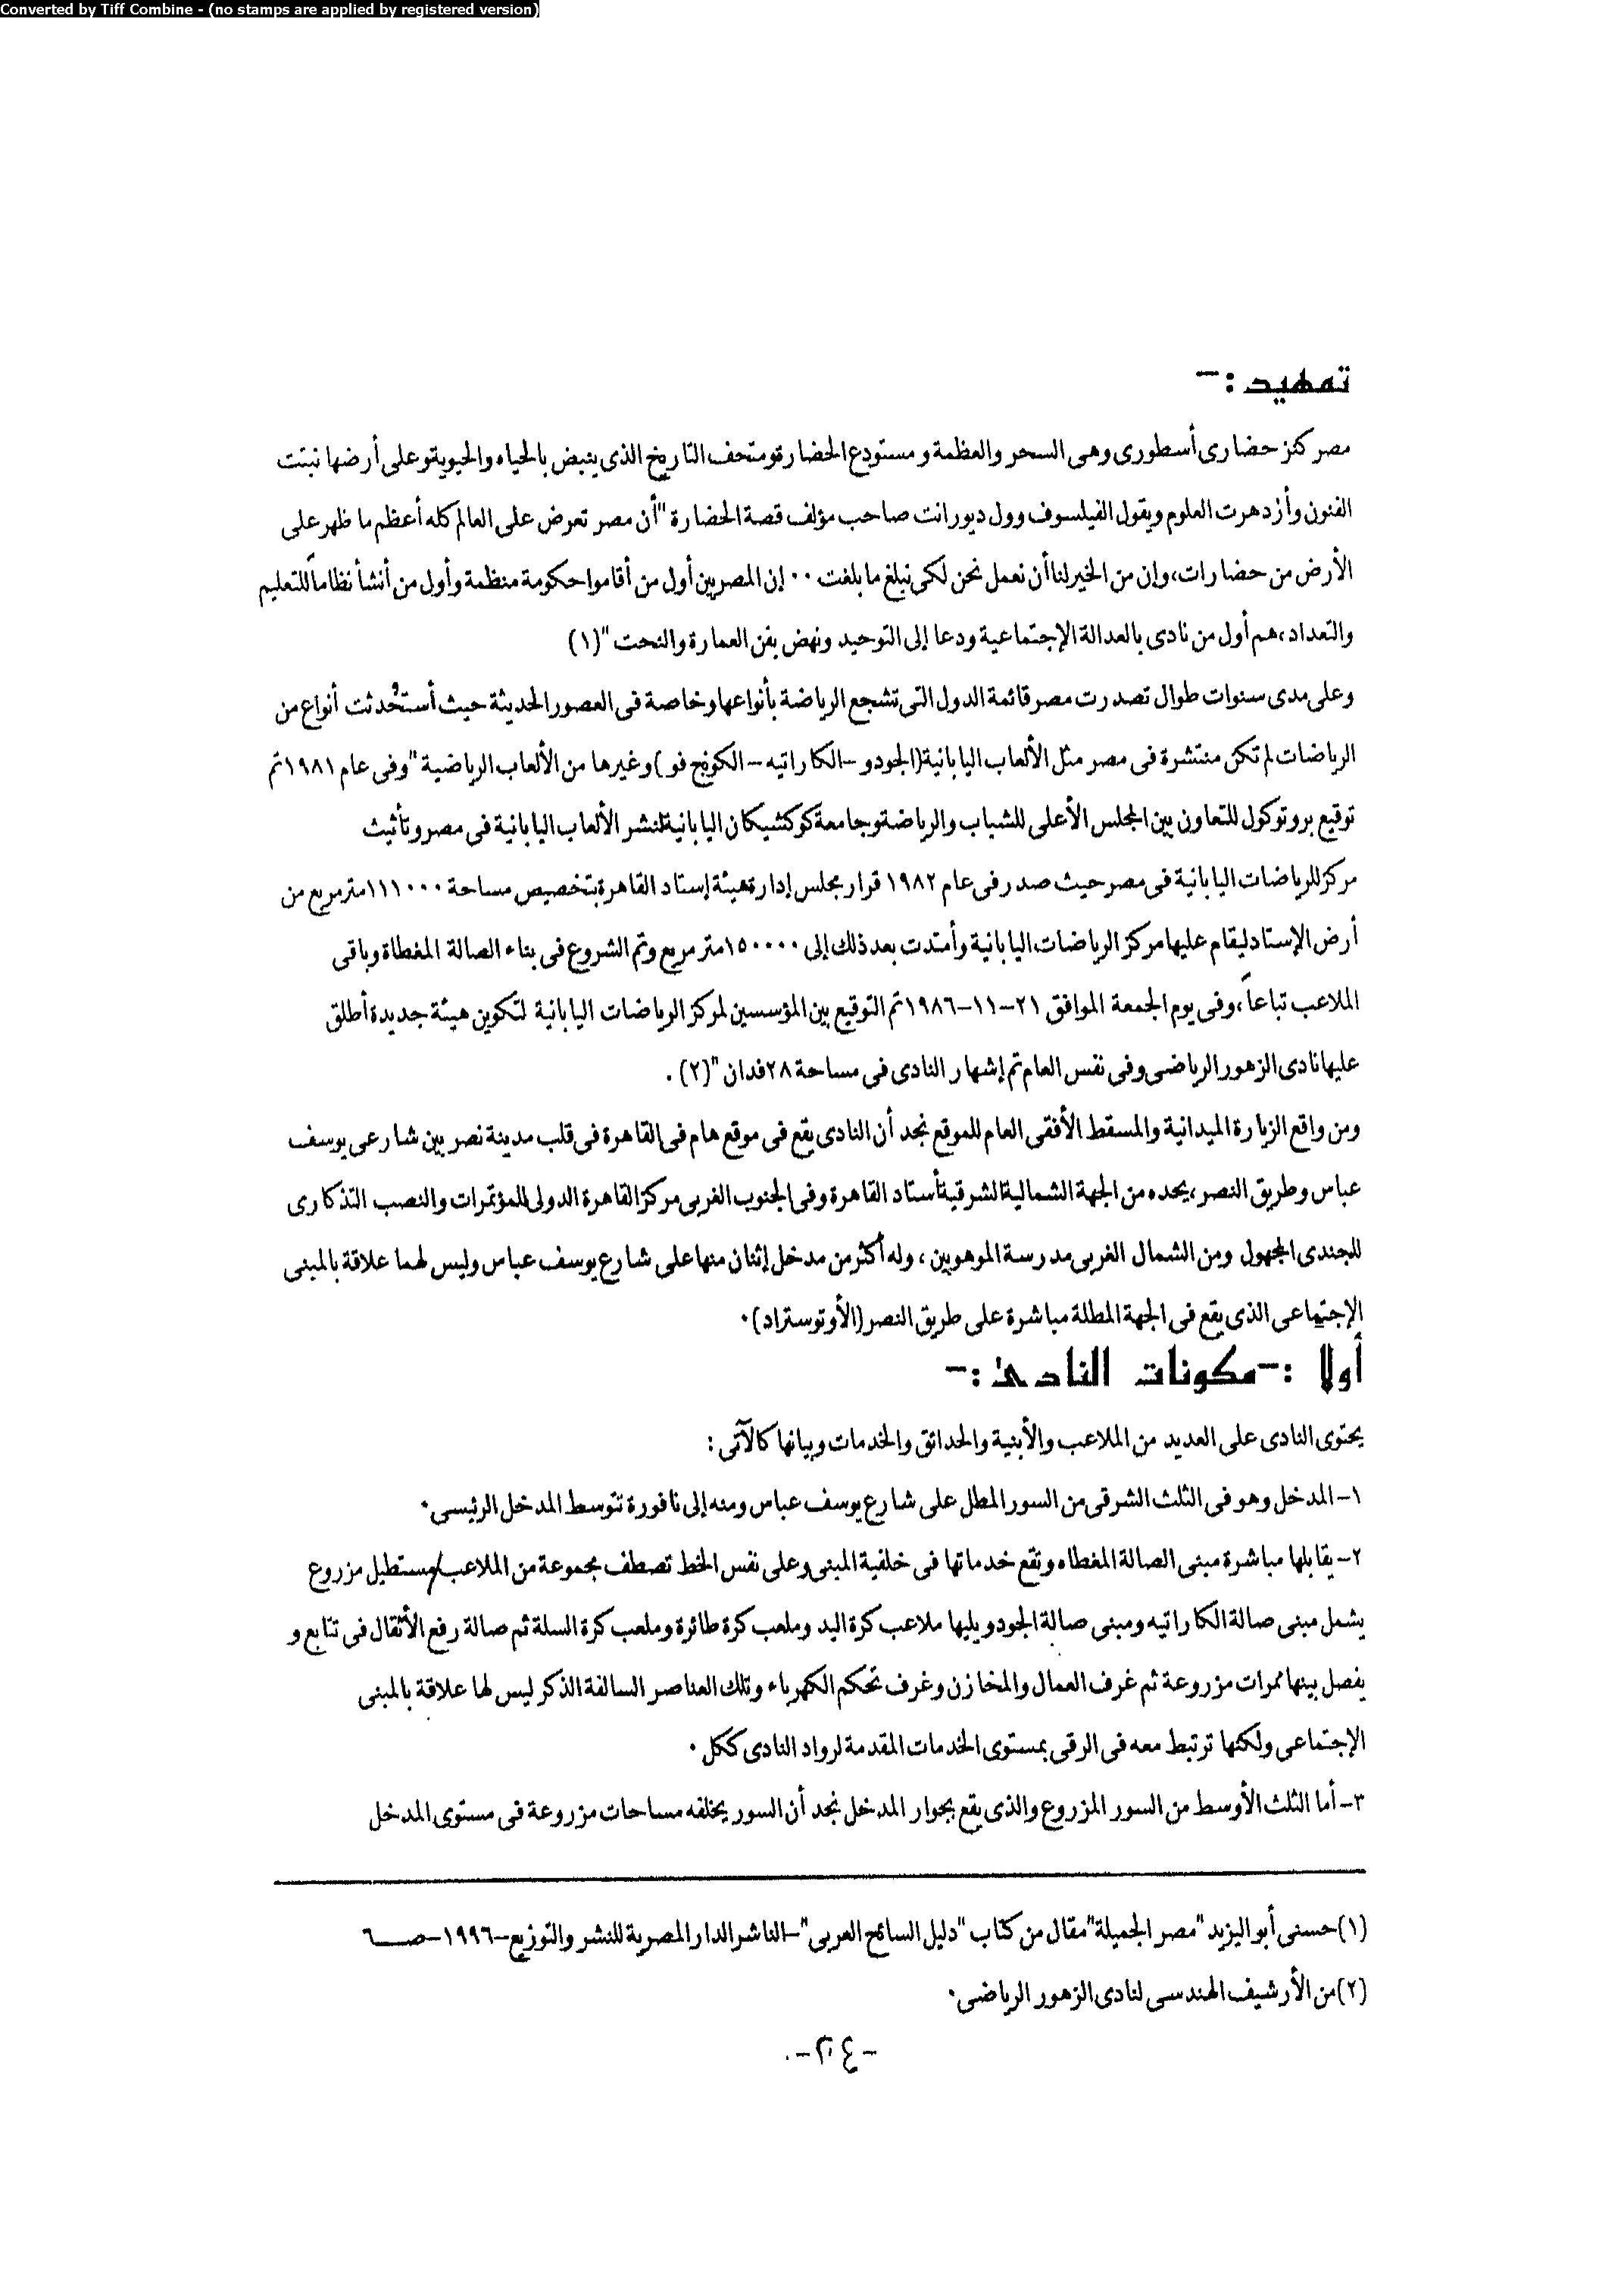 Converted by Tiff Combine - (no stamps are applied by registered version)
تمهيد :-
مصر كنز حضارى أسطورى وهى السحر والعظمة ومستودع الحضارة ومتحف التاريخ الذى ينبض بالحياه والحيوية وعلى أرضها نبتت
الفنون وأزدهرت العلوم ويقول الفيلسوف وول ديورانت صاحب مؤلف قصة الحضارة "أن مصر تعرض على العالم كله أعظم ما ظهر على
الأرض من حضارات، وإن من الخير لنا أن نعمل نحن لكى نبلغ ما بلغت ٠٠ إن المصريين أول من أقاموا حكومة منظمة وأول من أنشأ نظاماً للتعليم
والتعداد، هم أول من نادى بالعدالة الإجتماعية ودعا إلى التوحيد ونهض بفن العمارة والنحت "(١)
وعلى مدى سنوات طوال تصدرت مصر قائمة الدول التى تشجع الرياضة بأنواعها وخاصة فى العصور الحديثة حيث أستُحدثت أنواع من
الرياضات لم تكن منتشرة فى مصر مثل الألعاب اليابانية (الجودو - الكاراتيه - الكونج فو) وغيرها من الألعاب الرياضية "وفى عام ١٩٨١ تم
توقيع بروتوكول للتعاون بين المجلس الأعلى للشباب والرياضة وجامعة كوكشيكان اليابانية لنشر الألعاب اليابانية فى مصر وتأثيث
مركز للرياضات اليابانية فى مصر حيث صدر فى عام ١٩٨٢ قرار مجلس إدارة هيئة إستاد القاهرة بتخصيص مساحة ١١١٠٠٠ متر مربع من
أرض الإستاد ليقام عليها مركز الرياضات اليابانية وأمتدت بعد ذلك إلى ١٥٠٠٠٠ متر مربع وتم الشروع فى بناء الصالة المغطاة وباقى
الملاعب تباعاً، وفى يوم الجمعة الموافق ٢١-١١-١٩٨٦ تم التوقيع بين المؤسسين لمركز الرياضات اليابانية لتكوين هيئة جديدة أطلق
عليها نادى الزهور الرياضى وفى نفس العام تم إشهار النادى فى مساحة ٢٨ فدان "(٢) .
ومن واقع الزيارة الميدانية والمسقط الأفقى العام للموقع نجد أن النادى يقع فى موقع هام فى القاهرة فى قلب مدينة نصر بين شارعى يوسف
عباس وطريق النصر، يحده من الجهة الشمالية الشرقية أستاد القاهرة وفى الجنوب الغربى مركز القاهرة الدولى للمؤتمرات والنصب التذكارى
للجندى المجهول ومن الشمال الغربى مدرسة الموهوبين ، وله أكثر من مدخل إثنان منها على شارع يوسف عباس وليس لهما علاقة بالمبنى
الإجتماعى الذى يقع فى الجهة المطلة مباشرة على طريق النصر (الأوتوستراد)٠
أولا :- مكونات النادى :-
يحتوى النادى على العديد من الملاعب والأبنية والحدائق والخدمات وبيانها كالآتى :
١- المدخل وهو فى الثلث الشرقى من السور المطل على شارع يوسف عباس ومنه إلى نافورة تتوسط المدخل الرئيسى٠
٢- يقابلها مباشرة مبنى الصالة المغطاه وتقع خدماتها فى خلفية المبنى وعلى نفس الخط تصطف مجموعة من الملاعب / مستطيل مزروع
يشمل مبنى صالة الكاراتيه ومبنى صالة الجودو يليها ملاعب كرة اليد وملعب كرة طائرة وملعب كرة السلة ثم صالة رفع الأثقال فى تتابع و
يفصل بينها ممرات مزروعة ثم غرف العمال والمخازن وغرف تحكم الكهرباء وتلك العناصر السالفة الذكر ليس لها علاقة بالمبنى
الإجتماعى ولكنها ترتبط معه فى الرقى بمستوى الخدمات المقدمة لرواد النادى ككل ٠
٣- أما الثلث الأوسط من السور المزروع والذى يقع بجوار المدخل نجد أن السور يخلفه مساحات مزروعة فى مستوى المدخل
(١) حسنى أبو اليزيد "مصر الجميلة" مقال من كتاب "دليل السائح العربى" - الناشر الدار المصرية للنشر والتوزيع - ١٩٩٦ - صـــ٦
(٢) من الأرشيف الهندسى لنادى الزهور الرياضى٠